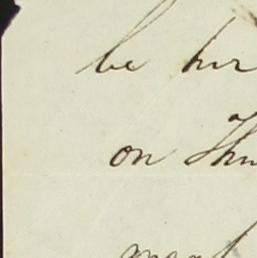 be her
on Thu